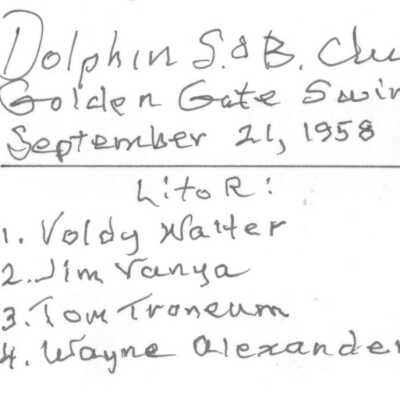 Dolphin S. & B. Clu
Golden Gate Swim
September 21, 1958
L to R:
1. Voldy Walter
2. Jim Vanya
3. Tom Troneum
4. Wayne Alexander